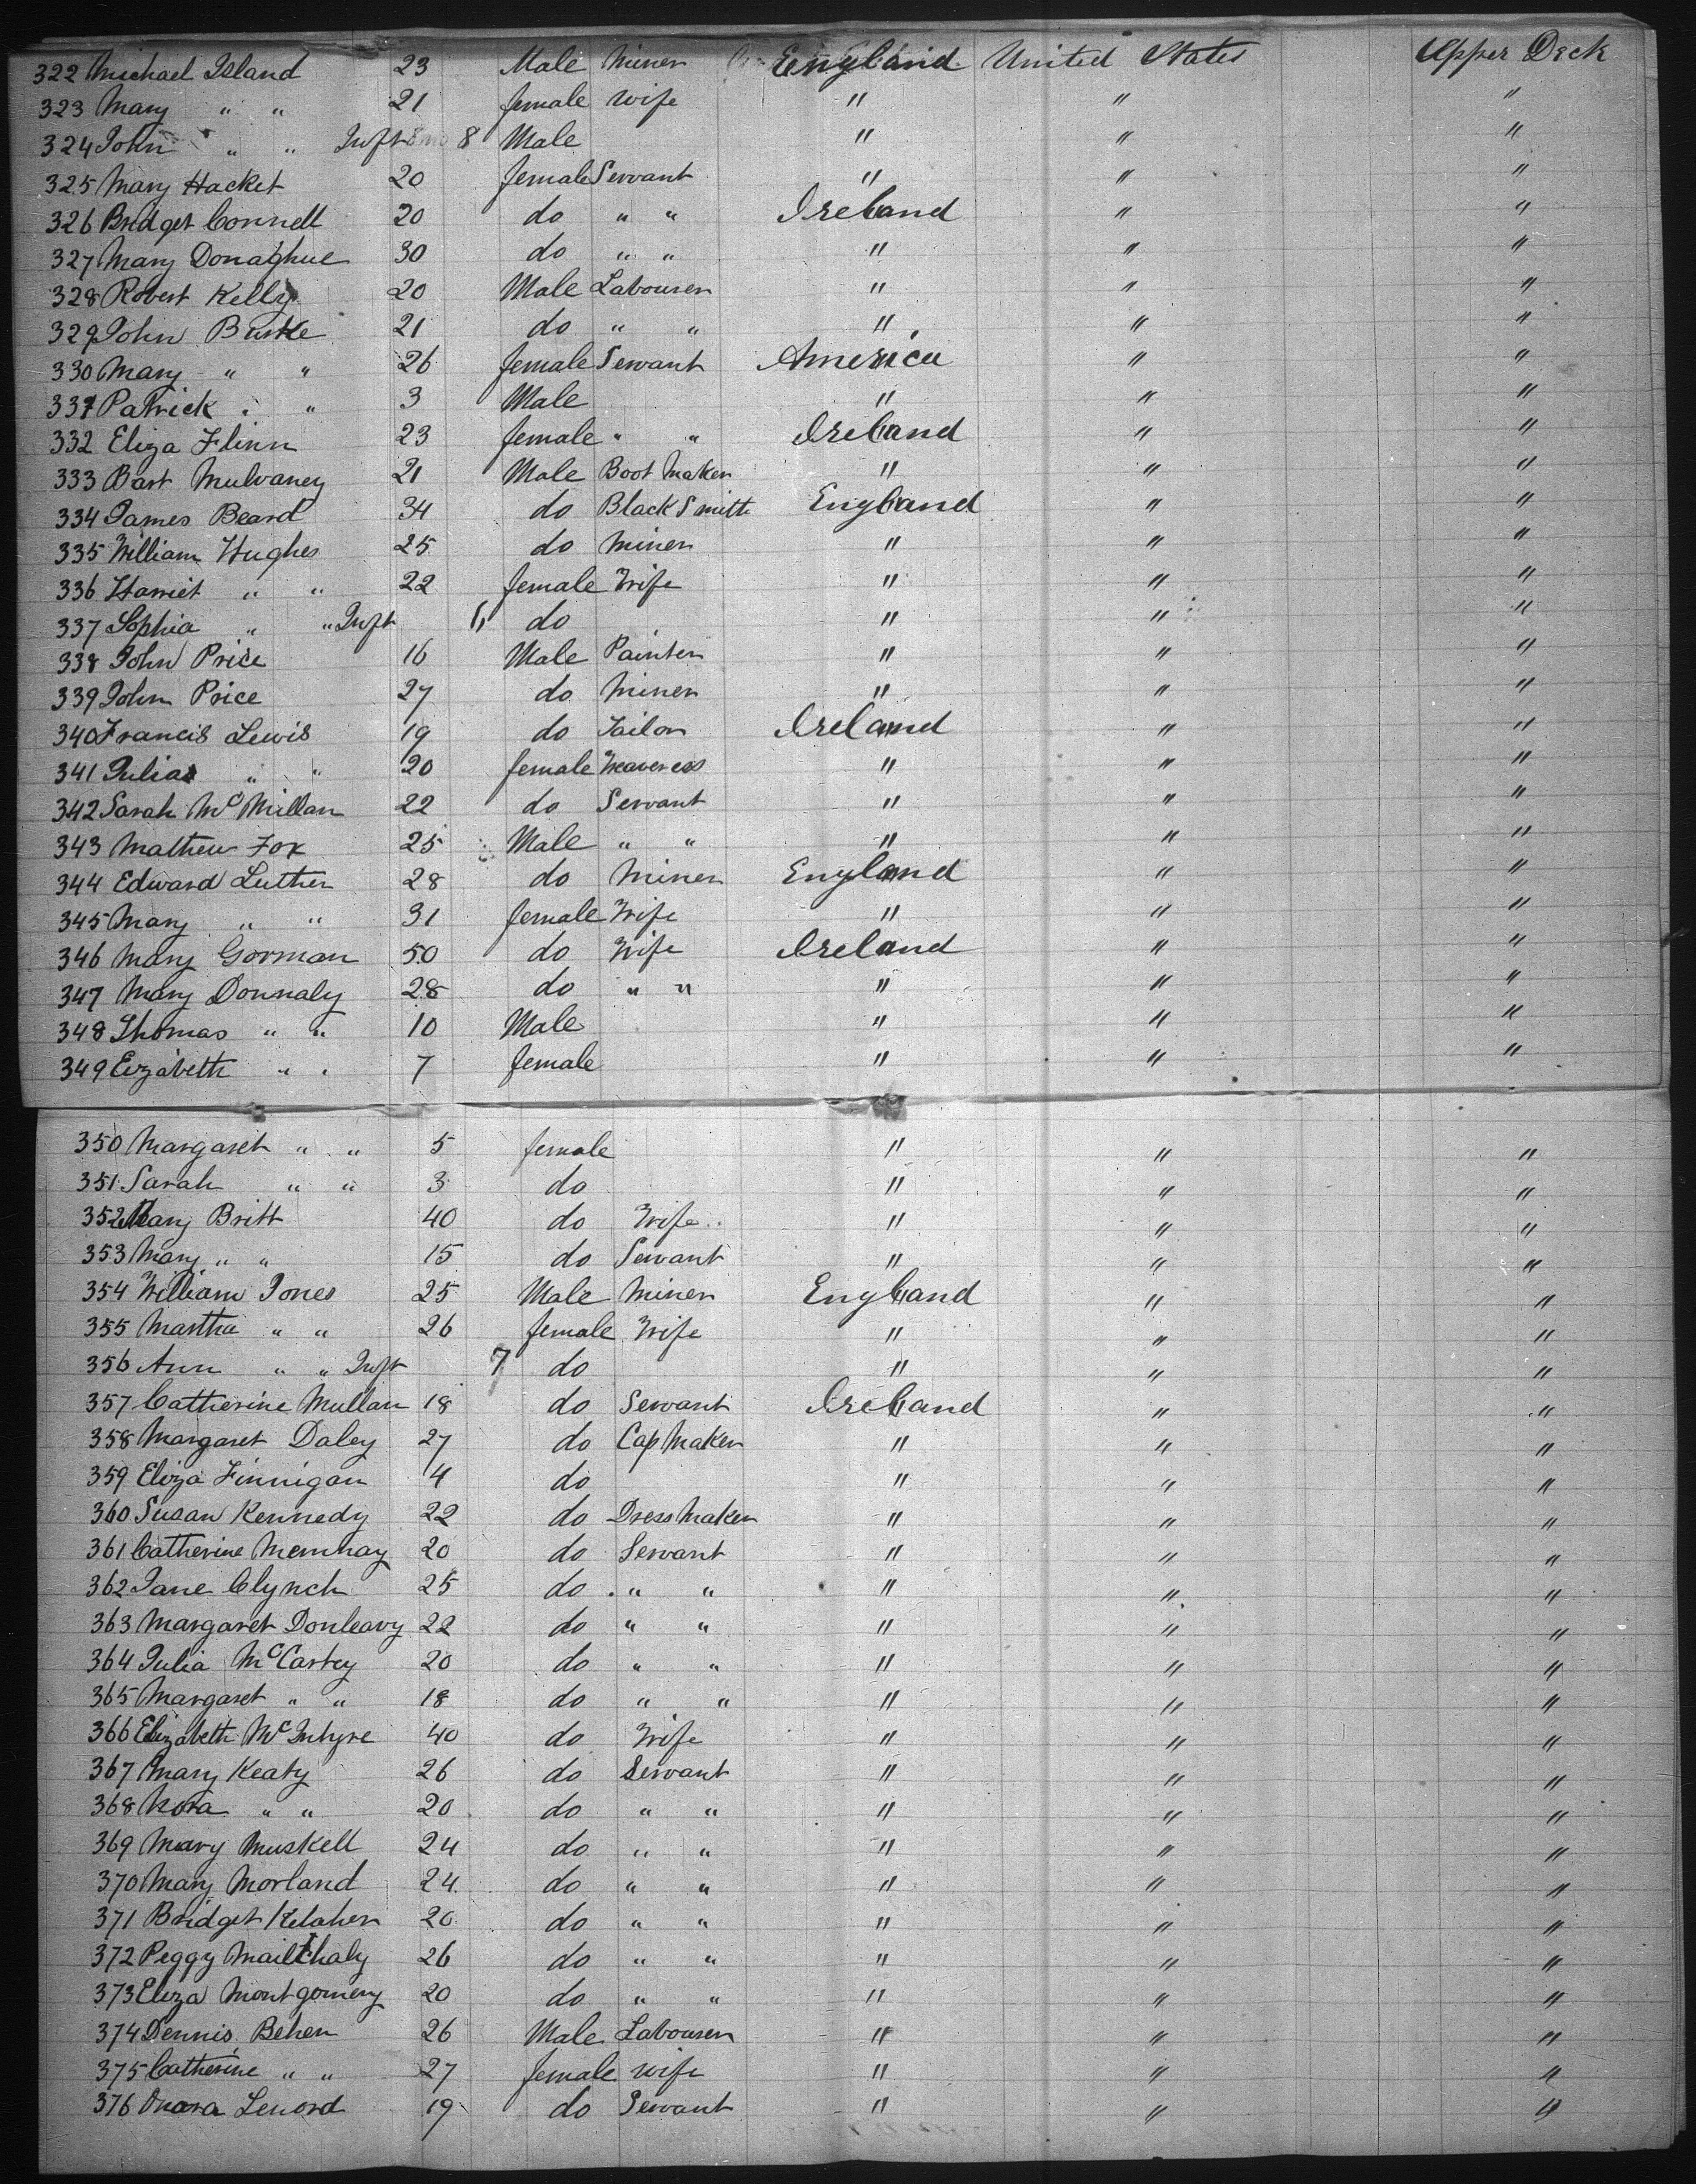 322 Michael Island 23 Male Miner England United States Upper Deck
323 Mary " " 21 female wife " " "
324 John " " Inft 8 Male " " "
325 Mary Hacket 20 female Servant " " "
326 Bridget Connell 20 do " " Ireland " "
327 Mary Donaghue 30 do " " " " "
328 Robert Kelly 20 Male Labourer " " "
329 John Burke 21 do " " " " "
330 Mary " " 26 female Servant America " "
331 Patrick " " 3 Male " " "
332 Eliza Flinn 23 female " " Ireland " "
333 Bart Mulvaney 21 Male Boot Maker " " "
334 James Beard 34 do Black Smith England " "
335 William Hughes 25 do Miner " " "
336 Harriet " " 22 female Wife " " "
337 Sophia " " Inft do " " "
338 John Price 16 Male Painter " " "
339 John Price 27 do Miner " " "
340 Francis Lewis 19 do Tailor Ireland " "
341 Julia " " 20 female Weaveress " " "
342 Sarah McMillan 22 do Servant " " "
343 Mathew Fox 25 Male " " " " "
344 Edward Luther 28 do Miner England " "
345 Mary " " 31 female Wife " " "
346 Mary Gorman 50 do Wife Ireland " "
347 Mary Donnaly 28 do " " " " "
348 Thomas " " 10 Male " " "
349 Ezabeth " " 7 female " " "
350 Margaret " " 5 female " " "
351 Sarah " " 3 do " " "
352 Mary Britt 40 do Wife " " "
353 Mary " " 15 do Servant " " "
354 William Jones 25 Male Miner England " "
355 Martha " " 26 female Wife " " "
356 Ann " " Inft 7 do " " "
357 Catherine Mullan 18 do Servant Ireland " "
358 Margaret Daley 27 do Cap Maker " " "
359 Eliza Finnigan 4 do " " "
360 Susan Kennedy 22 do Dress Maker " " "
361 Catherine 20 do Servant " " "
362 Jane Clynch 25 do " " " " "
363 Margaret Donleavy 22 do " " " " "
364 Julia McCartey 20 do " " " " "
365 Margaret " " 18 do " " " " "
366 Elizabeth McIntyre 40 do Wife " " "
367 Mary Keaty 26 do Servant " " "
368 Nora " " 20 do " " " " "
369 Mary Muskell 24 do " " " " "
370 Mary Morland 24 do " " " " "
371 Bridget Kelaher 20 do " " " " "
372 Peggy 26 do " " " " "
373 Eliza Montgomery 20 do " " " " "
374 Dennis Behen 26 Male Labourer " " "
375 Catherine " " 27 female wife " " "
376 Onora Lenord 19 do Servant " " "